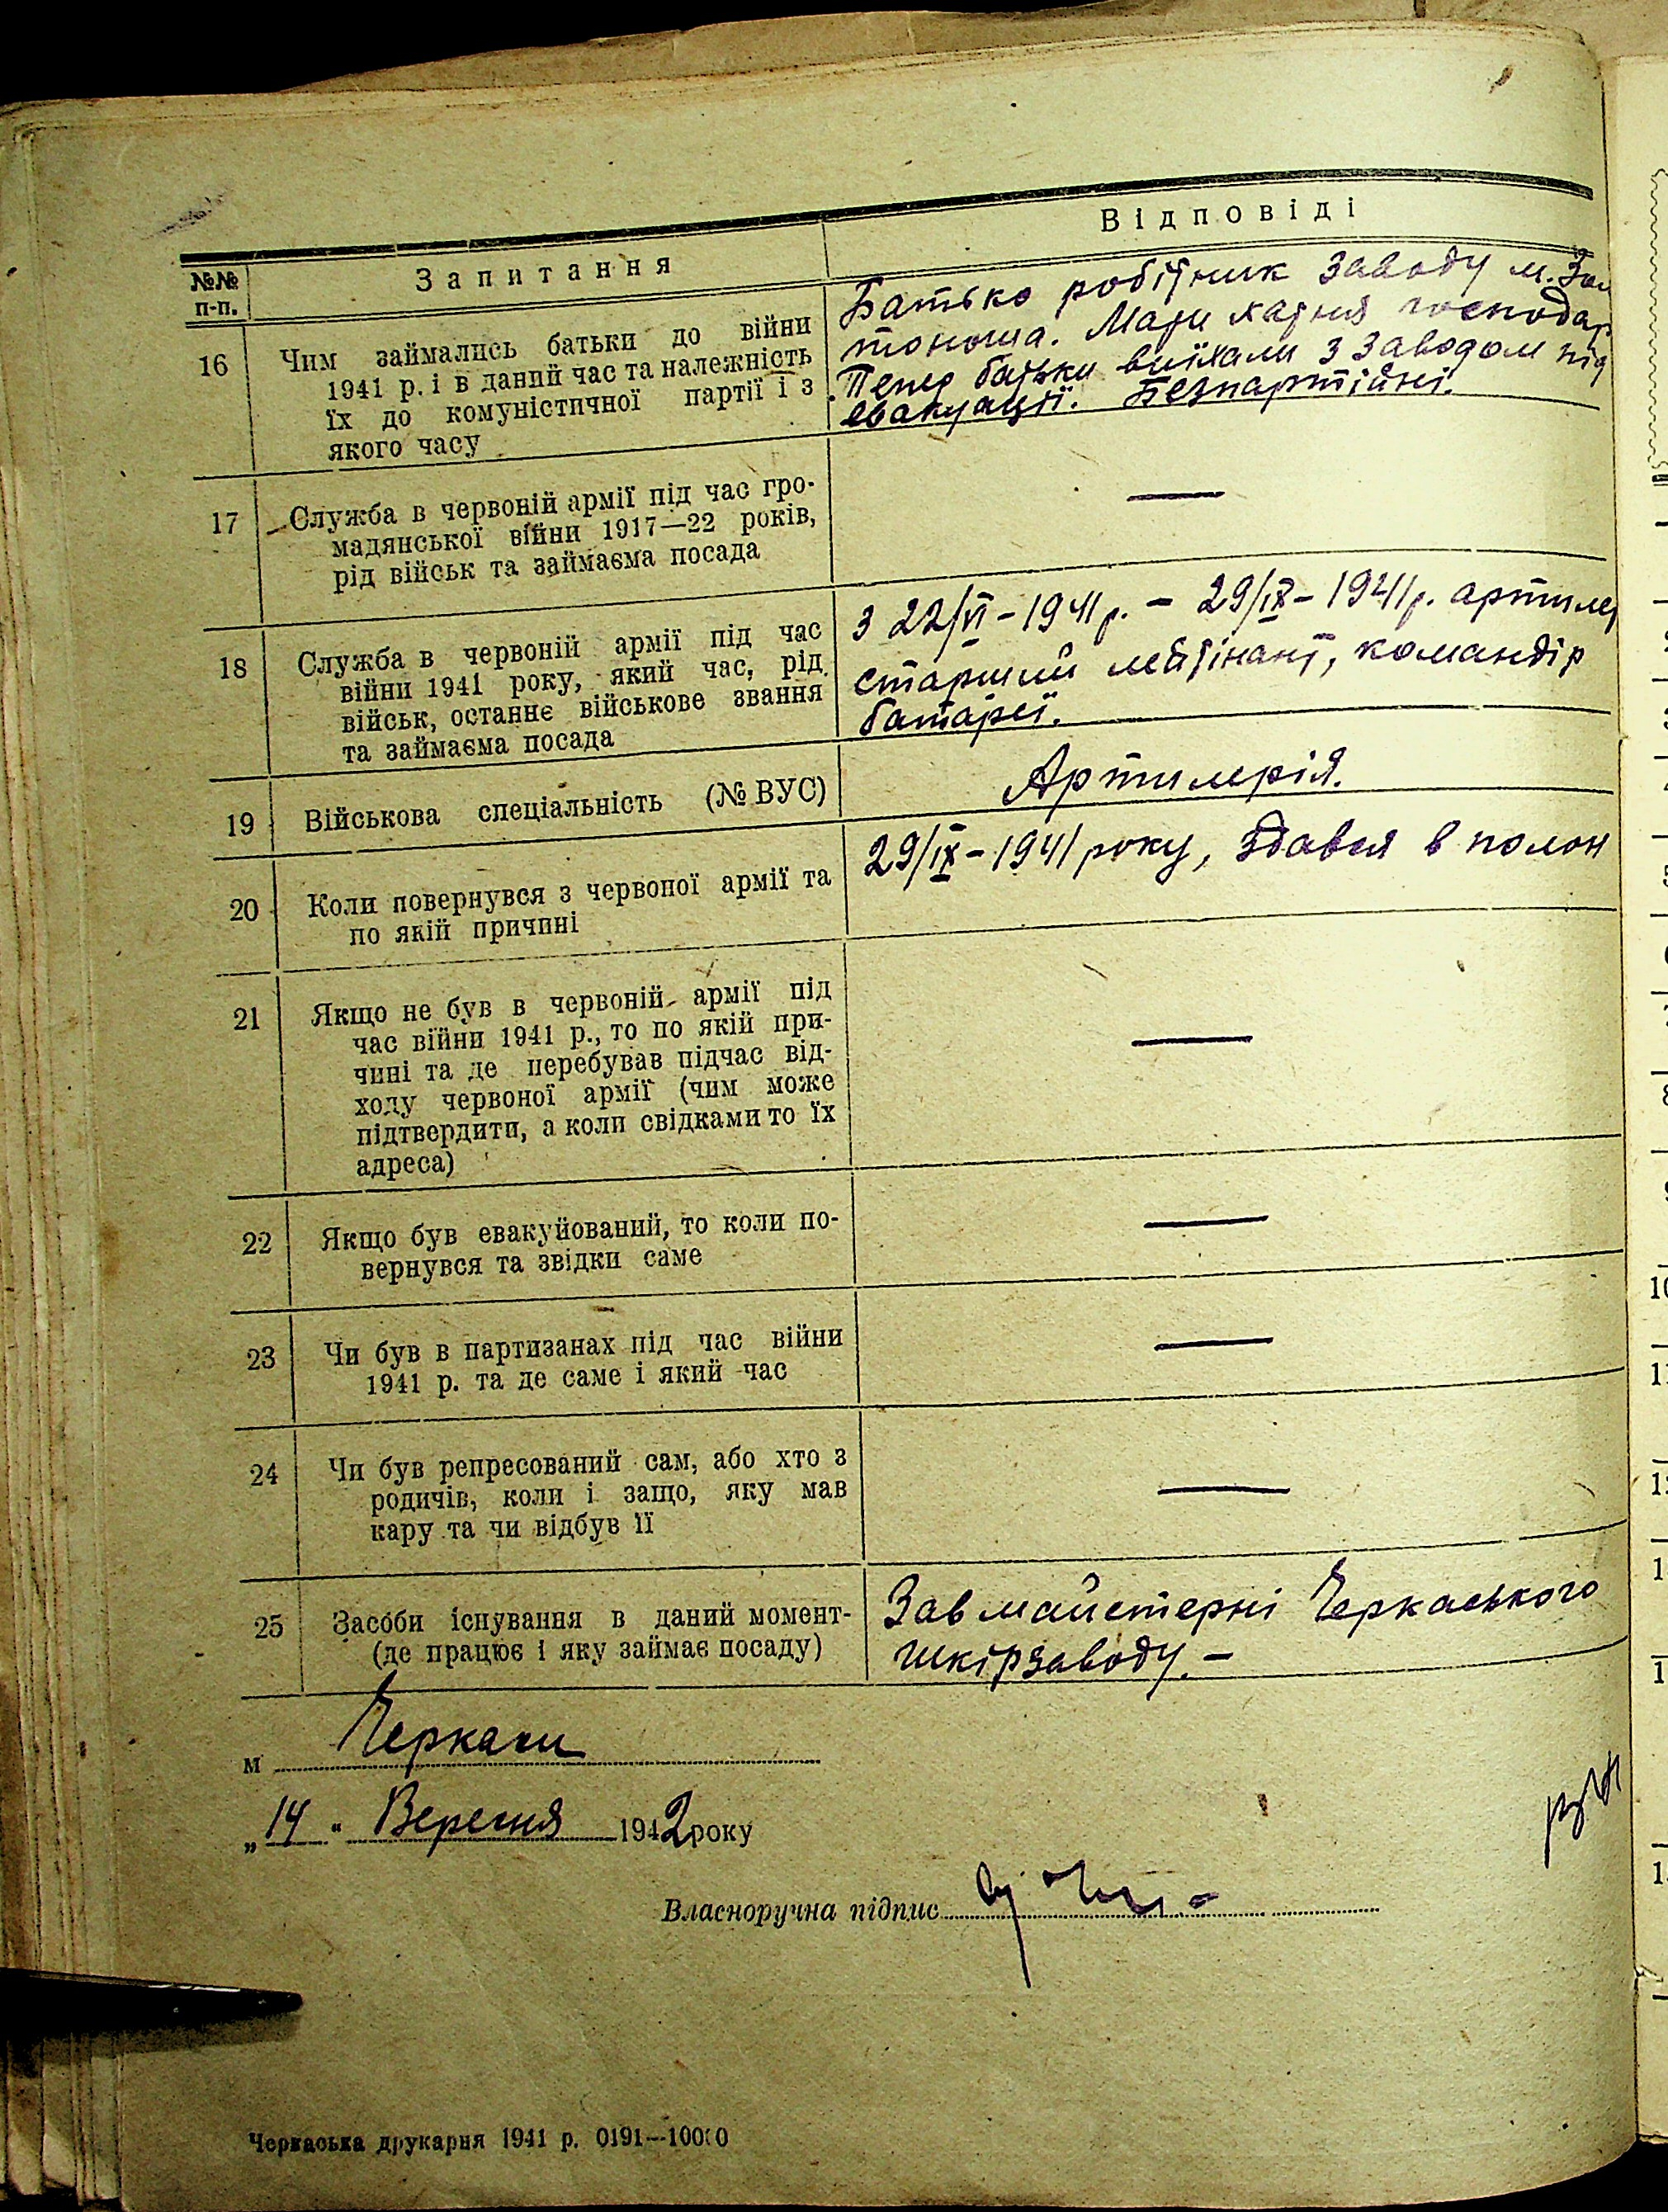 Відповіді
№№ п-п.
Запитання
16
Чим займались батьки до війни
1941 р. і в даний час та належність
їх до комуністичної партії і з
якого часу
Батько робітник заводу м. Зол
тоноша. Мати хатня господар
Тепер батьки виїхали з заводом під
евакуації. Безпартійні.
17
Служба в червоній армії під час гро-
мадянської війни 1917—22 років,
рід військ та займаєма посада
—
18
Служба в червоній армії під час
війни 1941 року, який час, рід
військ, останнє військове звання
та займаєма посада
З 22/VI - 1941 р. - 29/IX - 1941 р. артилер
старший лейтінант, командір
батареї.
19
Військова спеціальність (№ ВУС)
Артилерія.
20
Коли повернувся з червоної армії та
по якій причині
29/IX - 1941 року, здався в полон
21
Якщо не був в червоній армії під
час війни 1941 р., то по якій при-
чині та де перебував підчас від-
ходу червоної армії (чим може
підтвердити, а коли свідками то їх
адреса)
—
22
Якщо був евакуйований, то коли по-
вернувся та звідки саме
—
23
Чи був в партизанах під час війни
1941 р. та де саме і який час
—
24
Чи був репресований сам, або хто з
родичів, коли і защо, яку мав
кару та чи відбув її
—
25
Засоби існування в даний момент-
(де працює і яку займає посаду)
Зав майстерні Черкаського
шкірзаводу. -
м Черкаси
„14" Вересня 1942 року
Власноручна підпис
Черкаська друкарня 1941 р. 0191—10000